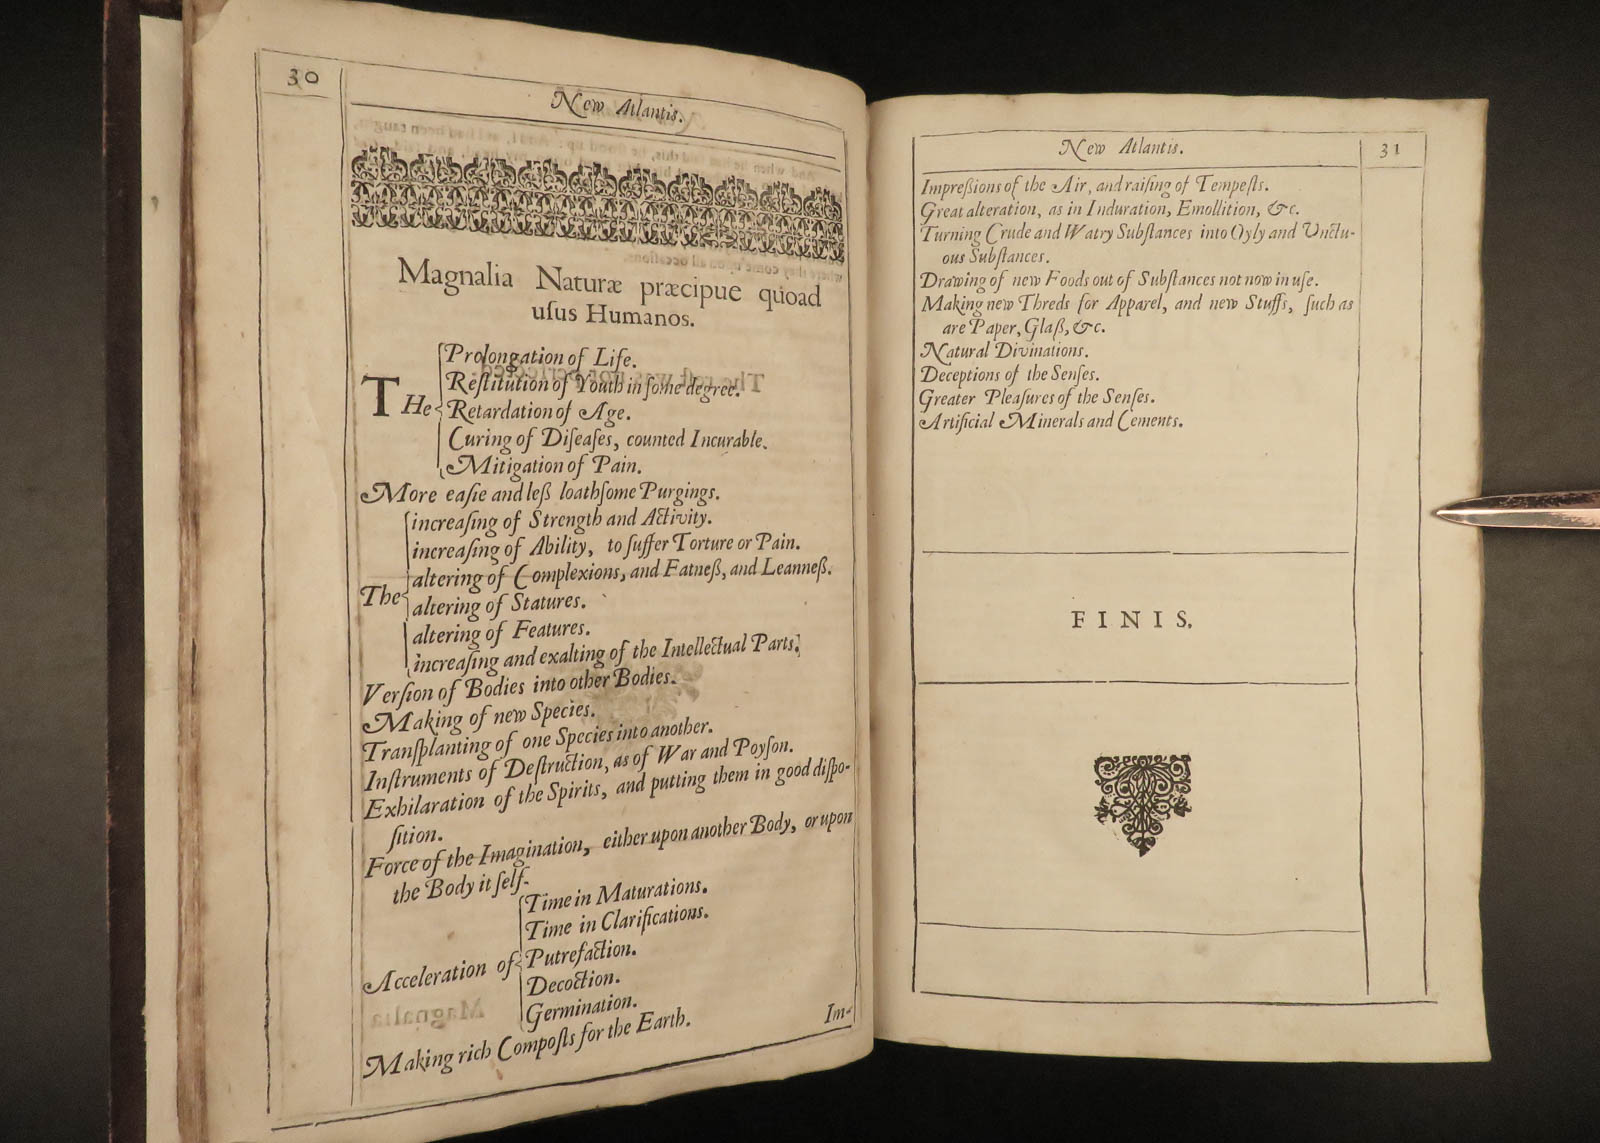 30
New Atlantis.
Magnalia Naturæ præcipue quoad
uſus Humanos.
THe
Prolongation of Life.
Reſtitution of Youth in ſome degree.
Retardation of Age.
Curing of Diſeaſes, counted Incurable.
Mitigation of Pain.
More eaſie and leß loathſome Purgings.
The
increaſing of Strength and Activity.
increaſing of Ability, to ſuffer Torture or Pain.
altering of Complexions, and Fatneß, and Leanneß.
altering of Statures.
altering of Features.
increaſing and exalting of the Intellectual Parts.
Verſion of Bodies into other Bodies.
Making of new Species.
Tranſplanting of one Species into another.
Inſtruments of Deſtruction, as of War and Poyſon.
Exhilaration of the Spirits, and putting them in good diſpo-
ſition.
Force of the Imagination, either upon another Body, or upon
the Body it ſelf.
Acceleration of
Time in Maturations.
Time in Clarifications.
Putrefaction.
Decoction.
Germination.
Making rich Compoſts for the Earth.
Im-
New Atlantis.
31
Impreßions of the Air, and raiſing of Tempeſts.
Great alteration, as in Induration, Emollition, &c.
Turning Crude and Watry Subſtances into Oyly and Vnctu-
ous Subſtances.
Drawing of new Foods out of Subſtances not now in uſe.
Making new Threds for Apparel, and new Stuffs, ſuch as
are Paper, Glaß, &c.
Natural Divinations.
Deceptions of the Senſes.
Greater Pleaſures of the Senſes.
Artificial Minerals and Cements.
FINIS.